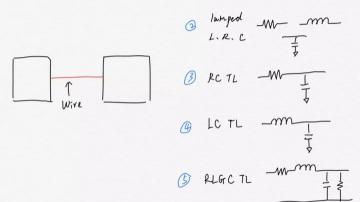 ② lumped
L. R. C
③ RC TL
Wire
④ LC TL
⑤ RLGC TL